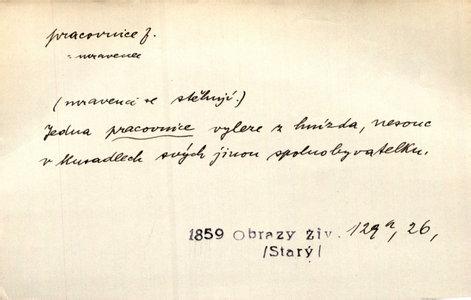 pracovnice f.
: mravenec
(mravenci se stěhují.)
Jedna pracovnice vyleze z hnízda, nesouc
v kusadlech svých jinou spoluobyvatelku.
1859 Obrazy živ. 129a, 26,
/Starý/